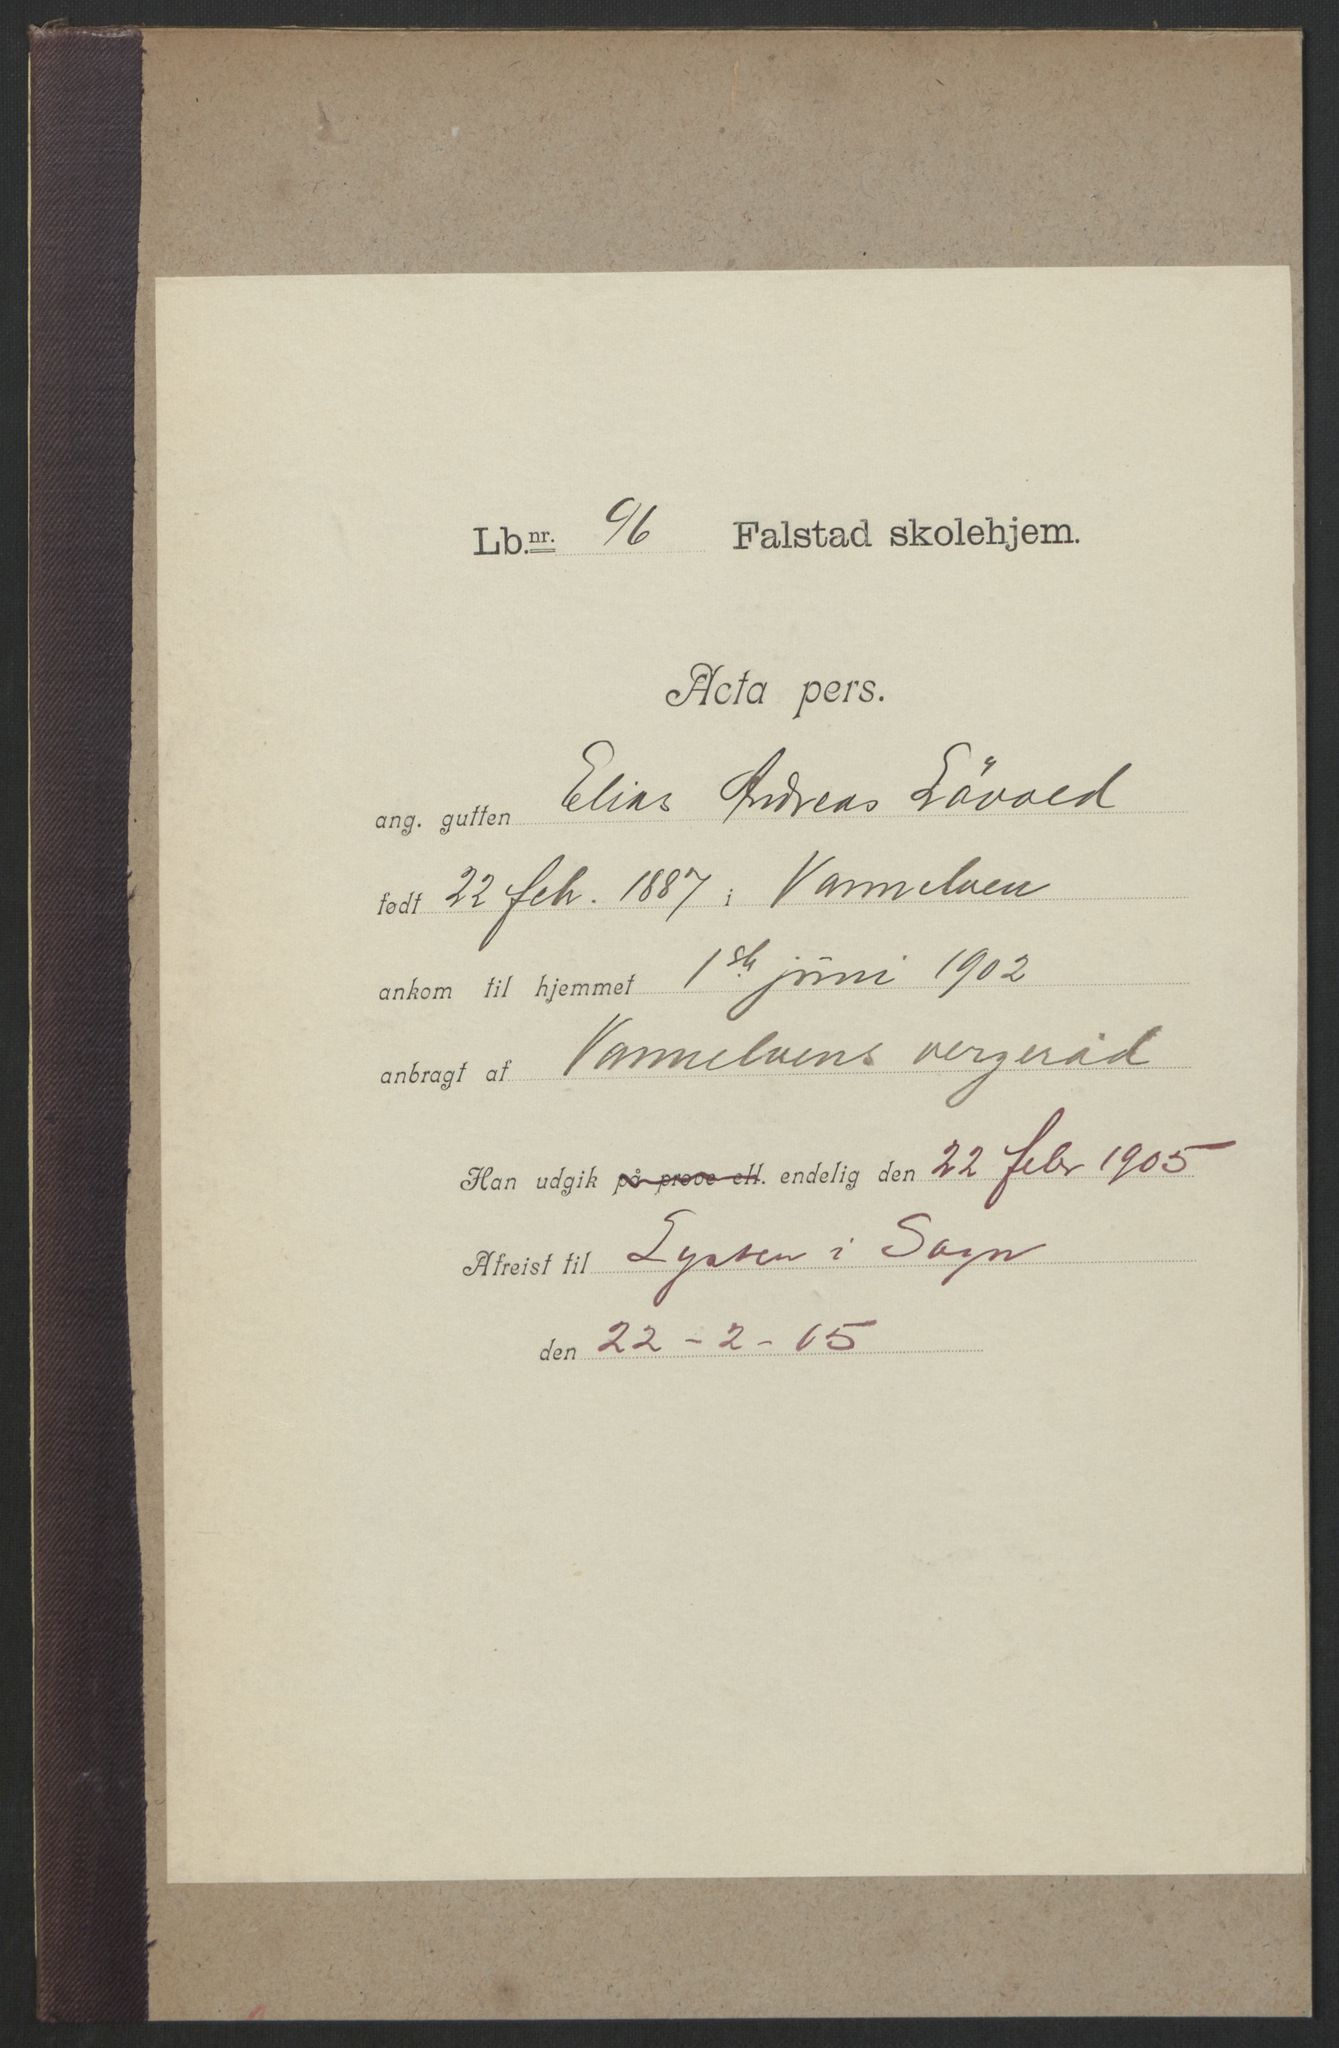 Lb.nr. 96 Falstad skolehjem.
Acta pers.
ang. gutten Elias Andreas Lövold
født 22 feb. 1887 i Vannelven
ankom til hjemmet 1ste juni 1902
anbragt af Vannelvens vergeråd
Han udgik på prøve ell. endelig den 22 febr 1905
Afreist til Lyster i Sogn
den 22-2-05